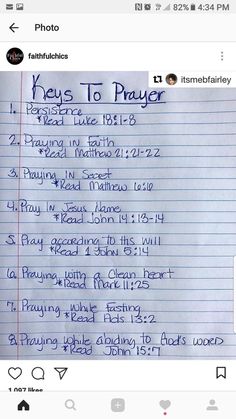 82% 4:34 PM
Photo
faithfulchics
itsmebfairley
Keys To Prayer
1. Persistence
*Read Luke 18:1-8
2. Praying in Faith
*Read Matthew 21:21-22
3. Praying In Secret
*Read Matthew 6:6
4. Pray In Jesus Name
*Read John 14:13-14
5. Pray according to His will
*Read 1 John 5:14
6. Praying with a Clean heart
*Read Mark 11:25
7. Praying while Fasting
*Read Acts 13:2
8. Praying while abiding to God's word
*Read John 15:7
1,097 likes